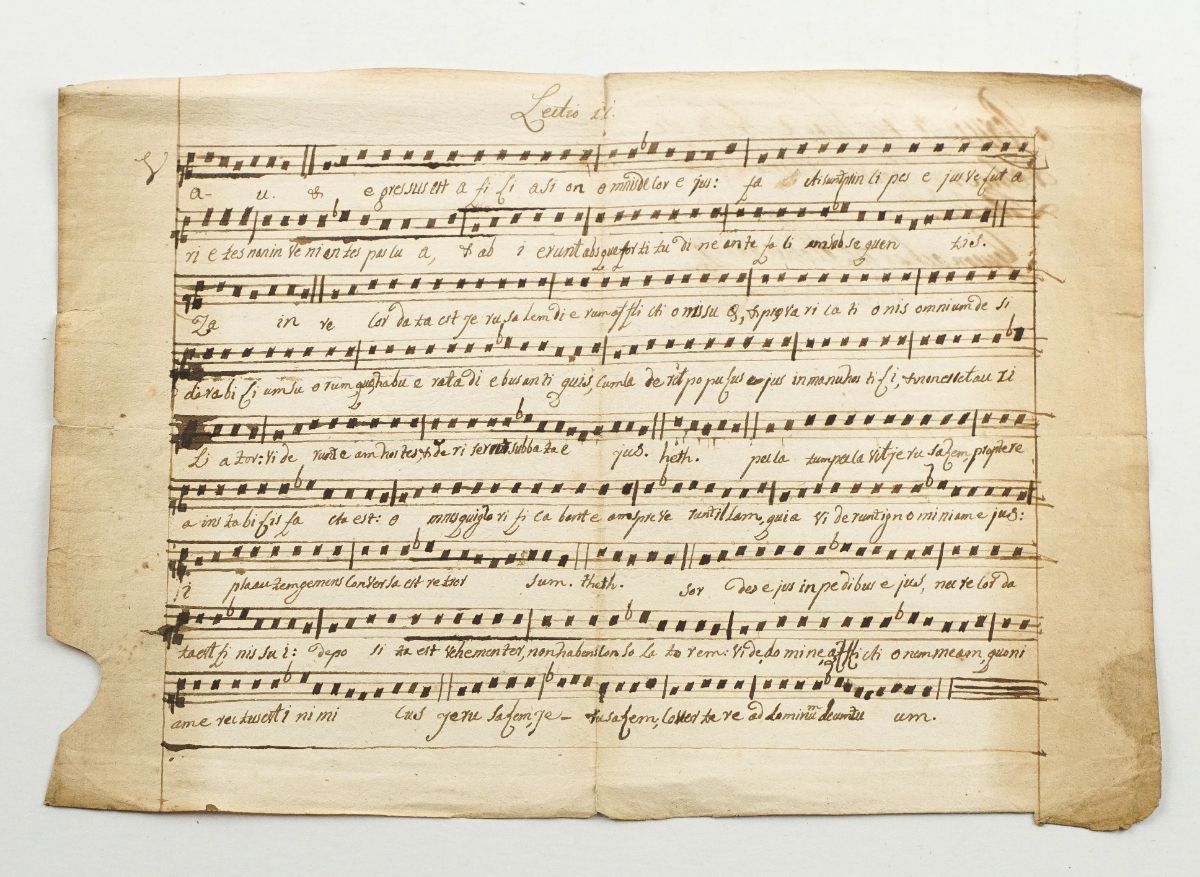 Lectio ii.
V a- u. & e gressus est a fi li a si on o mnis de cor e jus: fa cti sunt prin ci pes e jus ve lut a
ri e tes non in ve ni en tes pas cu a, & ab i erunt abs que for ti tu di ne an te fa ci em sub se quen tis.
Za in re cor da ta est je ru sa lem di e rum af fli cti o nis su æ, & præ va ri ca ti o nis omnium de si
de ra bi li um su o rum quæ habu e rat a di e bus an ti quis, cum ca de ret po pu lus e jus in manu hos ti li, & non esset au xi
li a tor: vi de runt e am hos tes, & de ri se runt sabba ta e jus. heth. pecca tum pecca vit je ru sa lem, propter e
a ins ta bi lis fa cta est: o mnes qui glo ri fi ca bant e am spre ve runt il lam, qui a vi de runt ig no mi niam e jus:
i psa au tem gemens con ver sa est re tror sum. theth. sor des e jus in pe di bus e jus, nec re cor da
ta est fi nis su i: depo si ta est vehe men ter, non habens con so la to rem: vi de, do mi ne, af fli cti o nem me am, quo ni
am e rec tus est i ni mi cus je ru sa lem, je- ru sa lem, co ver te re ad dominũ deum tu um.